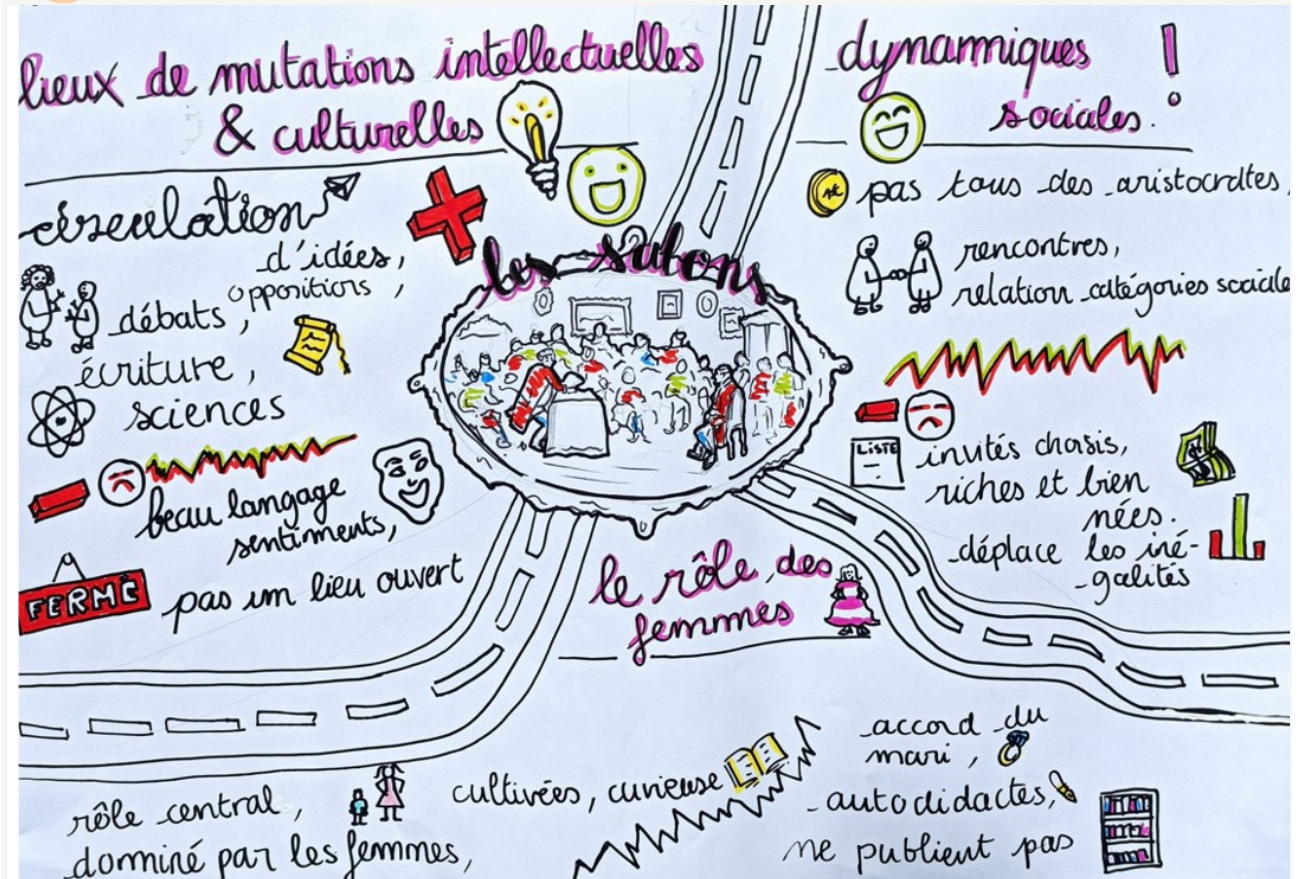 lieux de mutations intellectuelles
& culturelles
circulation
d'idées,
débats, oppositions,
écriture,
sciences
beau langage
sentiments,
FERMÉ
pas un lieu ouvert
les salons
dynamiques
sociales.
pas tous des aristocrates,
rencontres,
relation catégories sociale
LISTE
invités choisis,
riches et bien
nées.
déplace les iné-
-galités
le rôle des
femmes
rôle central,
dominé par les femmes,
cultivées, curieuse
accord du
mari,
autodidactes,
ne publient pas